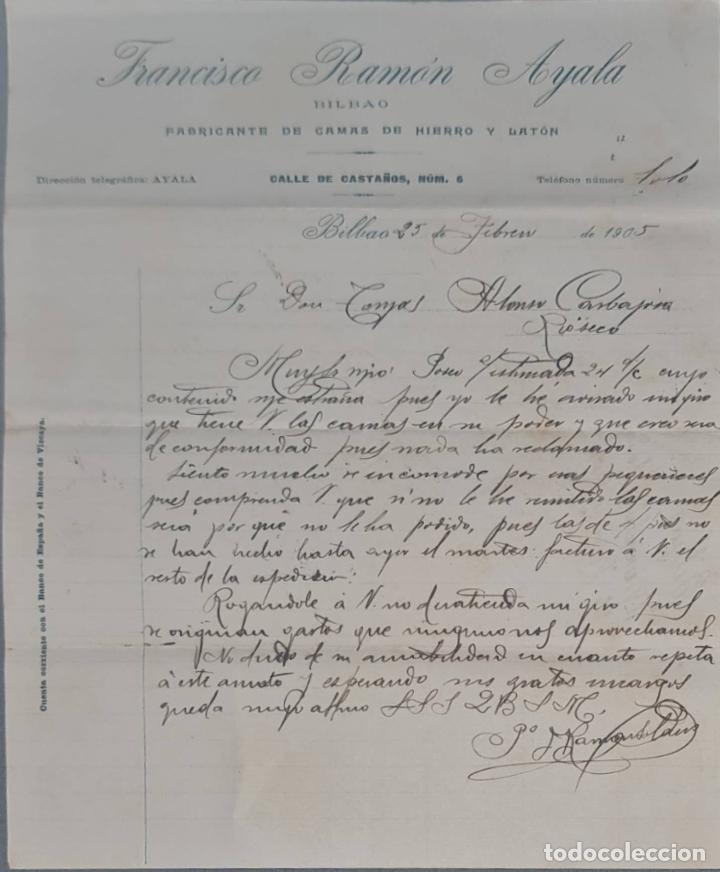 Francisco Ramón Ayala
BILBAO
FABRICANTE DE CAMAS DE HIERRO Y LATÓN
Dirección telegráfica: AYALA
CALLE DE CASTAÑOS, NÚM. 6
Teléfono número 1010
Bilbao 25 de Febrero de 1905
Sr Don Tomás Alonso Carbajosa
Rioseco
Muy Sr mio: Poseo s/ estimada 24 a/c cuyo
contenido me extraña pues yo le he avisado mi giro
que tiene V. las camas en su poder y que creo sera
de conformidad pues nada ha reclamado.
Siento mucho se incomode por esas pequeñeces
pues comprenda V. que si no le he remitido las camas
será por qué no le ha podido, pues las de 4 pies no
se han hecho hasta ayer el martes facturo á V. el
resto de la expedición.
Rogandole á V. no desatienda mi giro pues
se originan gastos que ninguno nos aprovechamos.
No dudo de su amabilidad en cuanto respeta
á este asunto y esperando sus gratos encargos
queda suyo affmo S S S Q B S M.
Pº
Cuenta corriente con el Banco de España y el Banco de Vizcaya.
todocoleccion.net